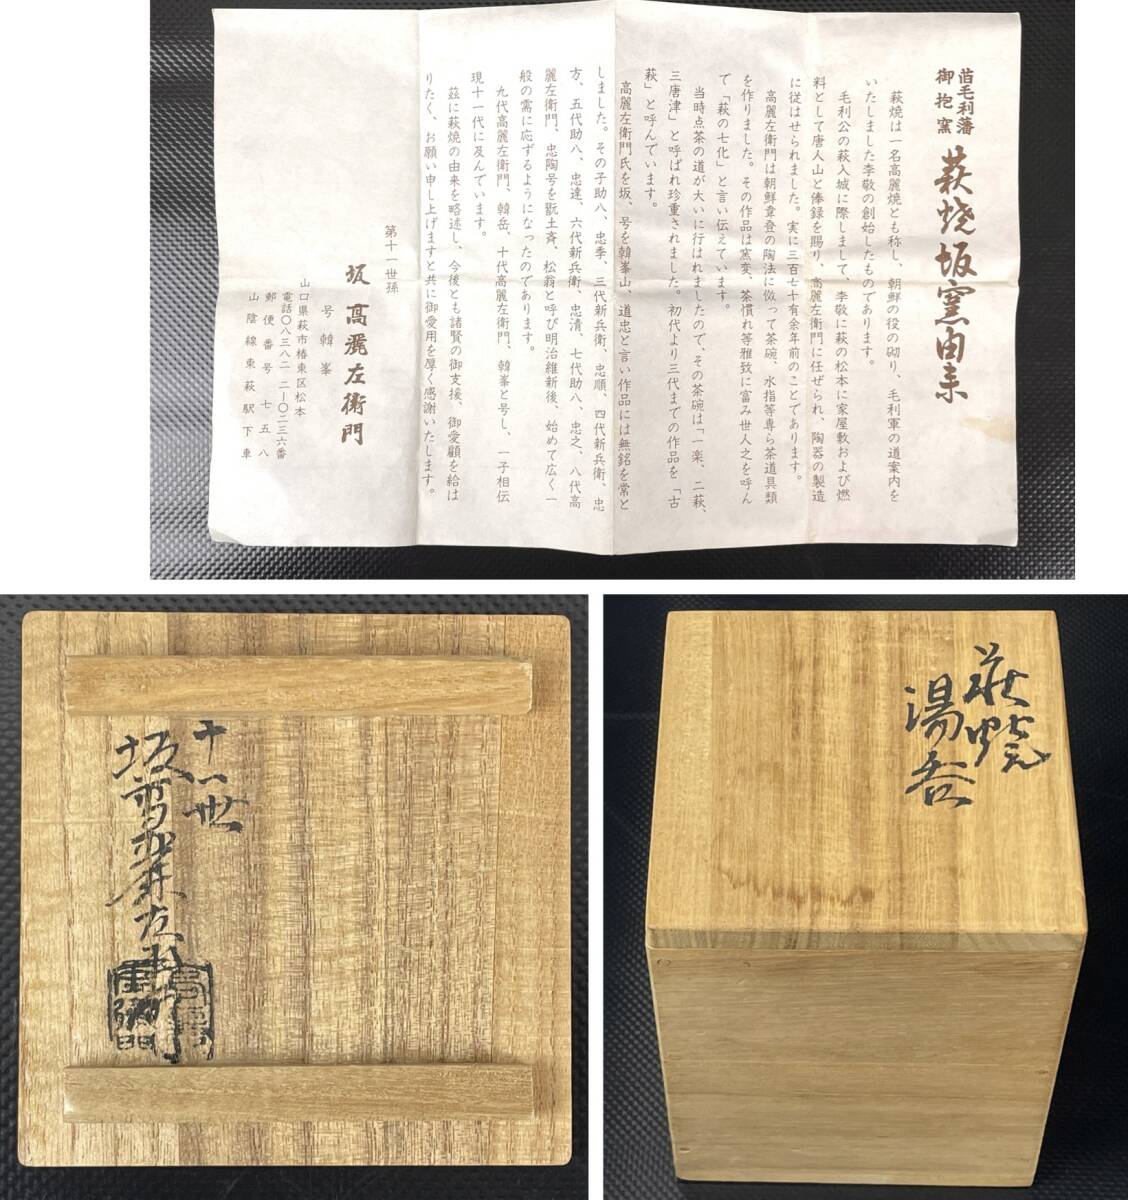 昔毛利藩
御抱窯
萩焼坂窯由来
萩焼は一名高麗焼とも称し、朝鮮の役の砌り、毛利軍の道案内を
いたしました李敬の創始したものであります。
毛利公の萩入城に際しまして、李敬に萩の松本に家屋敷および燃
料として唐人山と俸録を賜り、高麗左衛門に任ぜられ、陶器の製造
に従はせられました。実に三百七十有余年前のことであります。
高麗左衛門は朝鮮韋登の陶法に倣って茶碗、水指等専ら茶道具類
を作りました。その作品は窯変、茶慣れ等雅致に富み世人之を呼ん
で「萩の七化」と言い伝えています。
当時点茶の道が大いに行ばれましたので、その茶碗は「一楽、二萩、
三唐津」と呼ばれ珍重されました。初代より三代までの作品を「古
萩」と呼んでいます。
高麗左衛門氏を坂、号を韓峯山、道忠と言い作品には無銘を常と
しました。その子助八、忠季、三代新兵衛、忠順、四代新兵衛、忠
方、五代助八、忠達、六代新兵衛、忠清、七代助八、忠之、八代高
麗左衛門、忠陶号を翫土斉、松翁と呼び明治維新後、始めて広く一
般の需に応ずるようになったのであります。
九代高麗左衛門、韓岳、十代高麗左衛門、韓峯と号し、一子相伝
現十一代に及んでいます。
茲に萩焼の由来を略述し、今後とも諸賢の御支援、御愛顧を給は
りたく、お願い申し上げますと共に御愛用を厚く感謝いたします。
第十一世孫
坂高麗左衛門
号韓峯
山口県萩市椿東区松本
電話〇八三八二 二―〇二三六番
郵便番号七五八
山陰線東萩駅下車
十一世
坂高麗左衛門
萩焼
湯呑